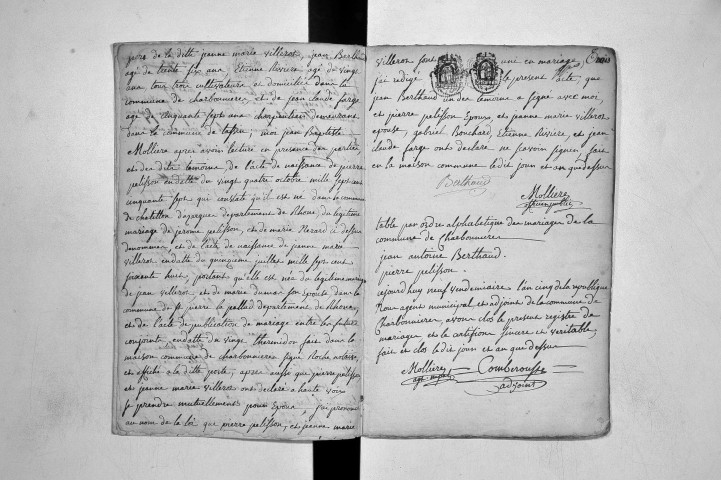 père de la ditte jeanne marie villerot, jean Berthaud
agé de trente six ans Etienne Riviere agé de vingt
ans tous trois cultivateurs et domiciliés dans la
commune de charbonnieres, et de jean claude farge
agé cinquante sept ans charpentier demeurant
dans la commune de tassin, moi jean Baptiste
Molliere apres avoir fait lecture en presence des parties
et des dits temoins de l'acte de naissance de pierre
pelisson en datte du vingt quatre octobre mille sept cent
cinquante sept qui constate qu'il est né dans la commune
de chatillon d'azergues departement du Rhone, du legitime
mariage de jerome pelisson, et de marie Nerard ci dessus
denommés, et de l'acte de naissance de jeanne marie
villerot en datte du quinzieme juillet mille sept cent
soixante huit, portant qu'elle est née du legitime mariage
de jean villerot et de marie dumas son epouse dans la
commune de st pierre la pallud departement du Rhone,
et de l'acte de publication de mariage entre les futurs
conjoints, en datte du vingt thermidor fait dans la
maison commune de charbonnieres signé Roche notaire,
et affiché a la ditte porte; apres aussi que pierre pelisson
et jeanne marie villerot ont declaré a haute voix
se prendre mutuellement pour Epoux, j'ai prononcé
au nom de la loi que pierre pelisson, et jeanne marie
villerot sont unis en mariage, Et
j'ai redigé le present acte, que
jean Berthaud un des temoins a signé avec moi,
et pierre pelisson Epoux, et jeanne marie villerot
epouse, gabriel Bouchard, Etienne Riviere, et jean
claude farge ont declaré ne savoir signer, fait
en la maison commune ledit jour et an que dessus
Berthaud
Molliere
table par ordre alphabetique des mariages de la
commune de Charbonnieres
jean antoine Berthaud.
pierre pelisson.
ajourdhuy neuf vendemiaire l'an cinq de la republique
Nous agent municipal et adjoint de la commune de
Charbonnieres, avons clos le present registre des
mariages et le certifions sincere et veritable,
fait et clos ledit jour et an que dessus
Molliere Comberousse
agt mpal adjoint